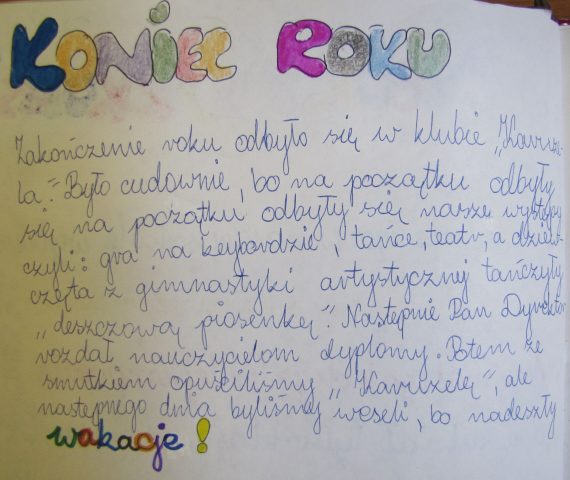 KONIEC ROKU
Zakończenie roku odbyło się w klubie „Karuze-
la”. Było cudownie, bo na początku odbyły
się na początku odbyły się nasze występy
czyli: gra na keybordzie, tańce, teatr, a dziew-
częta z gimnastyki artystycznej tańczyły
„deszczową piosenkę”. Następnie Pan Dyrektor
rozdał nauczycielom dyplomy. Potem ze
smutkiem opuściliśmy „Karuzelę”, ale
następnego dnia byliśmy weseli, bo nadeszły
wakacje!